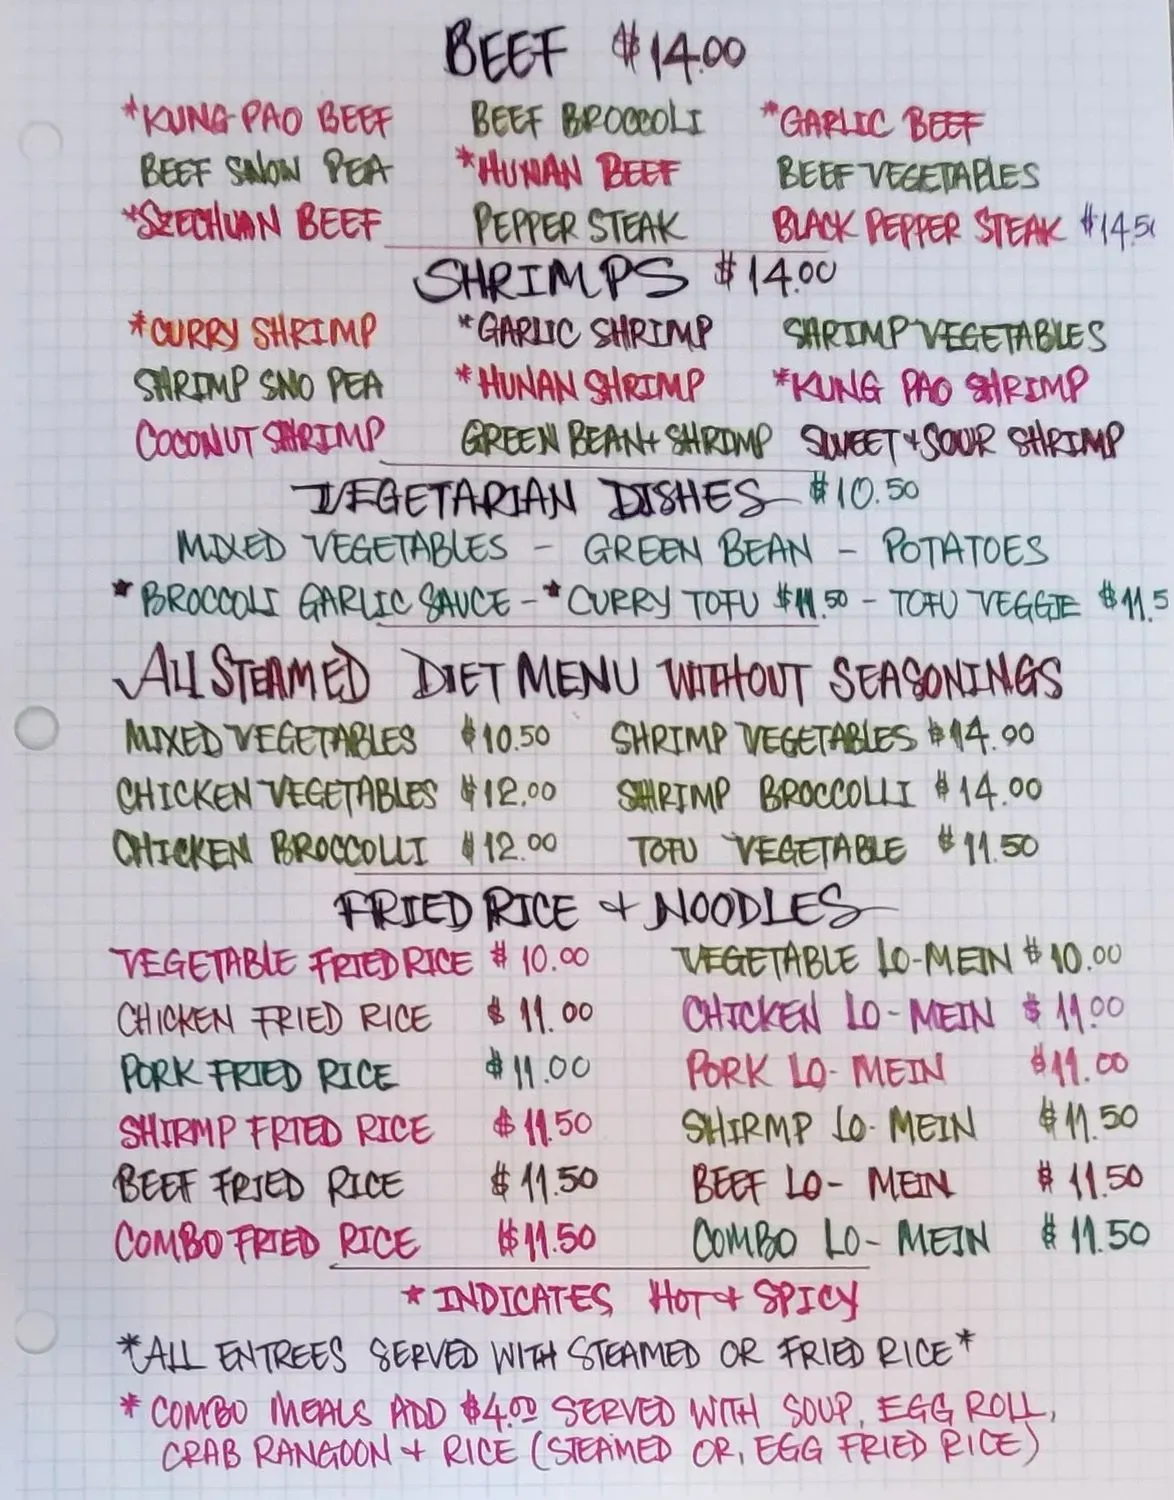 BEEF $14.00
*KUNG PAO BEEF BEEF BROCCOLI *GARLIC BEEF
BEEF SNOW PEA *HUNAN BEEF BEEF VEGETABLES
*SZECHUAN BEEF PEPPER STEAK BLACK PEPPER STEAK $14.50
SHRIMPS $14.00
*CURRY SHRIMP *GARLIC SHRIMP SHRIMP VEGETABLES
SHRIMP SNO PEA *HUNAN SHRIMP *KUNG PAO SHRIMP
COCONUT SHRIMP GREEN BEAN + SHRIMP SWEET + SOUR SHRIMP
VEGETARIAN DISHES $10.50
MIXED VEGETABLES - GREEN BEAN - POTATOES
*BROCCOLI GARLIC SAUCE - *CURRY TOFU $11.50 - TOFU VEGGIE $11.5
ALL STEAMED DIET MENU WITHOUT SEASONINGS
MIXED VEGETABLES $10.50 SHRIMP VEGETABLES $14.00
CHICKEN VEGETABLES $12.00 SHRIMP BROCCOLLI $14.00
CHICKEN BROCCOLLI $12.00 TOFU VEGETABLE $11.50
FRIED RICE + NOODLES
VEGETABLE FRIED RICE $10.00 VEGETABLE LO-MEIN $10.00
CHICKEN FRIED RICE $11.00 CHICKEN LO-MEIN $11.00
PORK FRIED RICE $11.00 PORK LO-MEIN $11.00
SHIRMP FRIED RICE $11.50 SHIRMP LO-MEIN $11.50
BEEF FRIED RICE $11.50 BEEF LO-MEIN $11.50
COMBO FRIED RICE $11.50 COMBO LO-MEIN $11.50
* INDICATES HOT + SPICY
*ALL ENTREES SERVED WITH STEAMED OR FRIED RICE*
* COMBO MEALS ADD $4.00 SERVED WITH SOUP, EGG ROLL,
CRAB RANGOON + RICE (STEAMED OR, EGG FRIED RICE)